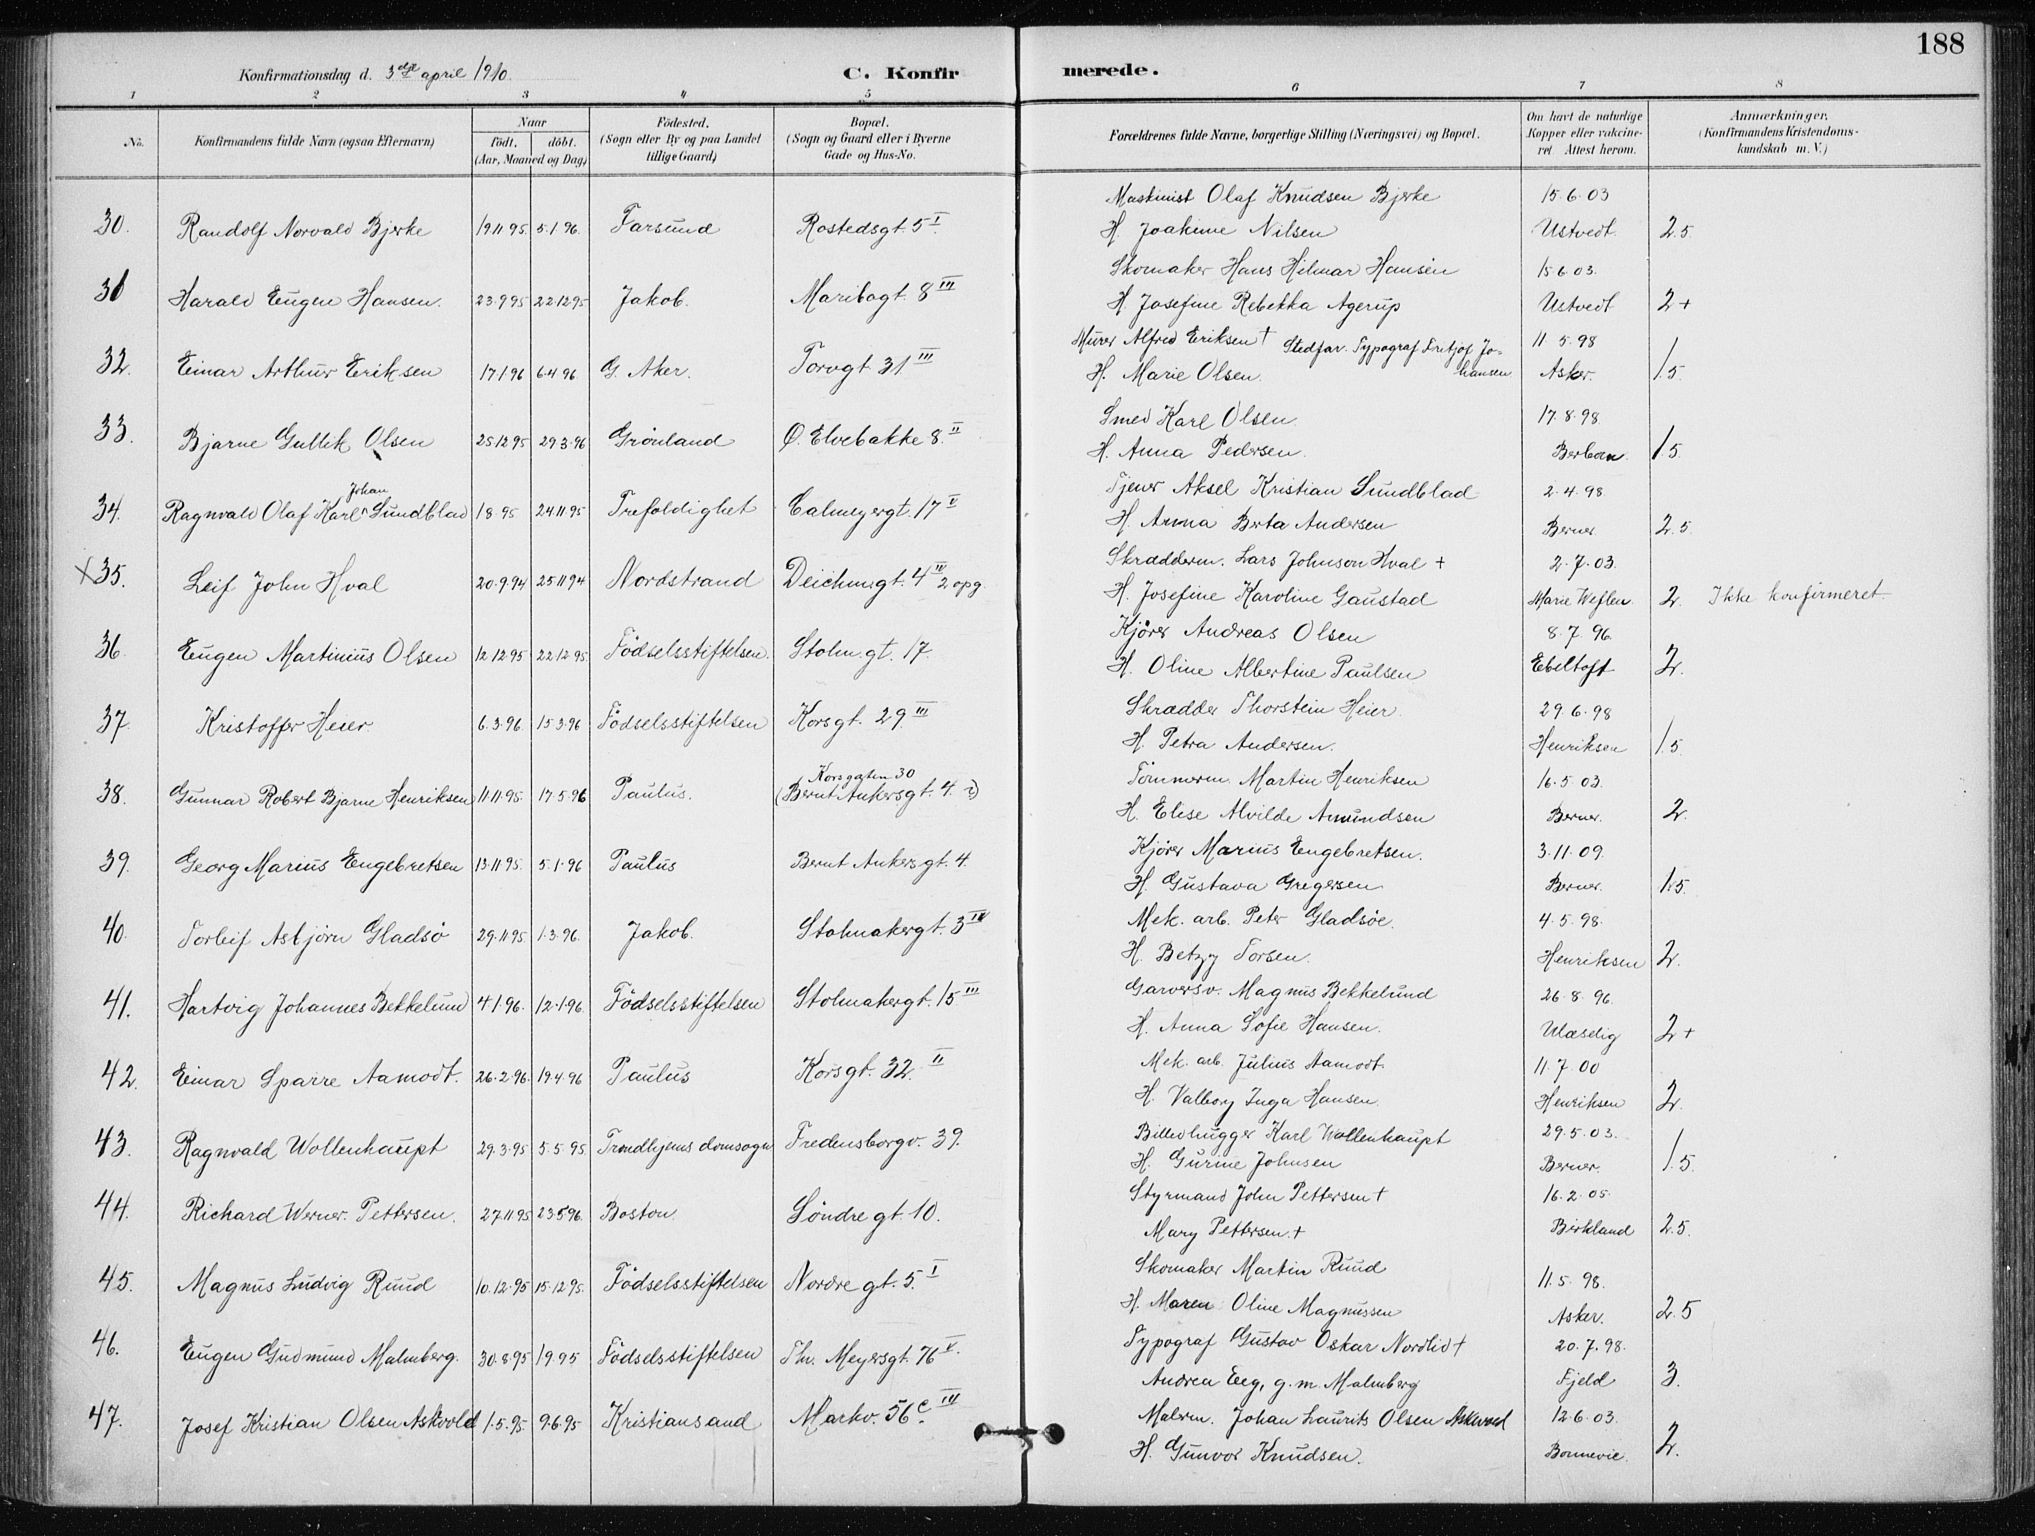 188
Konfirmationsdag d. 3die april 1910. C. Konfirmerede.
1 2 3 4 5 6 7 8
No. Konfirmandens fulde Navn (ogsaa Efternavn) Naar født. døbt. (Aar, Maaned og Dag) Fødested. (Sogn eller By og paa Landet tillige Gaard) Bopæl. (Sogn og Gaard eller i Byerne Gade og Hus-No. Forældrenes fulde Navne, borgerlige Stilling (Næringsvei) og Bopæl. Om havt de naturlige Kopper eller vakcineret Attest herom. Anmærkninger. (Konfirmandens Kristendomskundskab m. V.)
Maskinist Olaf Knudsen Bjerke 15.6.03
30. Randolf Norvald Bjerke 19.11.95 5.1.96 Farsund Rostedsgt. 5 I H. Joakime Nilsen Ustvedt 2.5
Skomaker Hans Hilmar Hansen 15.6.03.
31 Harald Eugen Hansen. 23.9.95 22.12.95 Jakob. Maribogt. 8 III H. Josefine Rebekka Agerup Ustvedt 2+
Murer Alfred Eriksen † Stedfar. Typograf Fritjof Johansen 11.5.98
32. Einar Arthur Eriksen 17.1.96 6.4.96 G. Aker. Torvgt. 31 III H. Marie Olsen. Asker. 1.5
Smed Karl Olsen. 17.8.98
33. Bjarne Gullik Olsen 25.12.95 29.3.96 Grönland Ø. Elvebakke 8. II H. Anna Pedersen. 1.5.
Tjener Aksel Kristian Sundblad 2.4.98
34. Ragnvald Olaf Karl Johan Sundblad 1.8.95 24.11.95 Trefoldighet Calmeyergt. 17 V H. Anna Berta Andersen Berner 2.5
Skrædderm. Lars Johnson Hval + 2.7.03.
X 35. Leif John Hval 20.9.94 25.11.94 Nordstrand Deichmgt. 4 IV 2 opg. H. Josefine Karoline Gaustad Marie Weflen. 2. Ikke konfirmeret.
Kjörer Andreas Olsen 8.7.96.
36. Eugen Martinius Olsen 12.12.95 22.12.95. Födselsstiftelsen. Stolm.gt. 17. H. Oline Albertine Paulsen Ebeltoft 2.
Skrædder Thorstein Heier. 29.6.98
37. Kristoffer Heier. 6.3.96. 15.3.96 Födselsstiftelsen Korsgt. 29 III H. Petra Andersen. Henriksen 1.5
Tömmerm. Martin Henriksen 16.5.03.
38. Gunnar Robert Bjarne Henriksen 11.11.95. 17.5.96 Paulus. Korsgaten 30 (Bernt Ankersgt. 4. ?) H. Elise Alvilde Amundsen Berner. 2.
Kjörer Marius Engebretsen. 3.11.09.
39. Georg Marius Engebretsen 13.11.95. 5.1.96 Paulus Bernt Ankersgt. 4. H. Gustava Gregersen Berner. 1.5.
Mek. arb. Peter Gladsöe. 4.5.98.
40. Torleif Asbjörn Gladsö 29.11.95 1.3.96. Jakob. Stolmakergt. 3 IV H. Betzy Torsen. Henriksen 2.
Garversv. Magnus Bekkelund 26.8.96.
41. Hartvig Johannes Bekkelund 4.1.96. 12.1.96 Födselsstiftelsen Stolmakergt. 15 III H. Anna Sofie Hansen. Ulæselig 2+
Mek. arb. Julius Aamodt. 11.7.00
42. Einar Sparre Aamodt. 26.2.96. 19.4.96 Paulus Korsgt. 32. II H. Valborg Inga Hansen. Henriksen 2.
Billedhugger Karl Wollenhaupt 29.5.03.
43. Ragnvald Wollenhaupt 29.3.95 5.5.95. Trondhjems domsogn Fredensborgv. 39. H. Gurine Johnsen Berner. 1.5.
Styrmand John Pettersen † 16.2.05
44. Richard Werner. Pettersen. 27.11.95 23.5.96. Boston. Söndre gt. 10. Mary Pettersen. + Birkland 2.5.
Skomaker Martin Ruud 11.5.98.
45. Magnus Ludvig Ruud 10.12.95 15.12.95. Födselsstiftelsen Nordre gt. 5. I H. Maren Oline Magnussen Asker. 2.5
Typograf Gustav Oskar Nordlid + 20.7.98.
46. Eugen Gudmund Malmberg. 30.8.95 1.9.95 Födselsstiftelsen Th. Meyersgt. 76 V. Andrea Eeg, g.m. Malmberg Fjeld 3.
Malerm. Johan Laurits Olsen Askevold 12.6.03.
47. Josef Kristian Olsen Askvold 1.5.95. 9.6.95 Kristiansand Markv. 56 c. III H. Gunvor Knudsen. Bonnevie. 2.